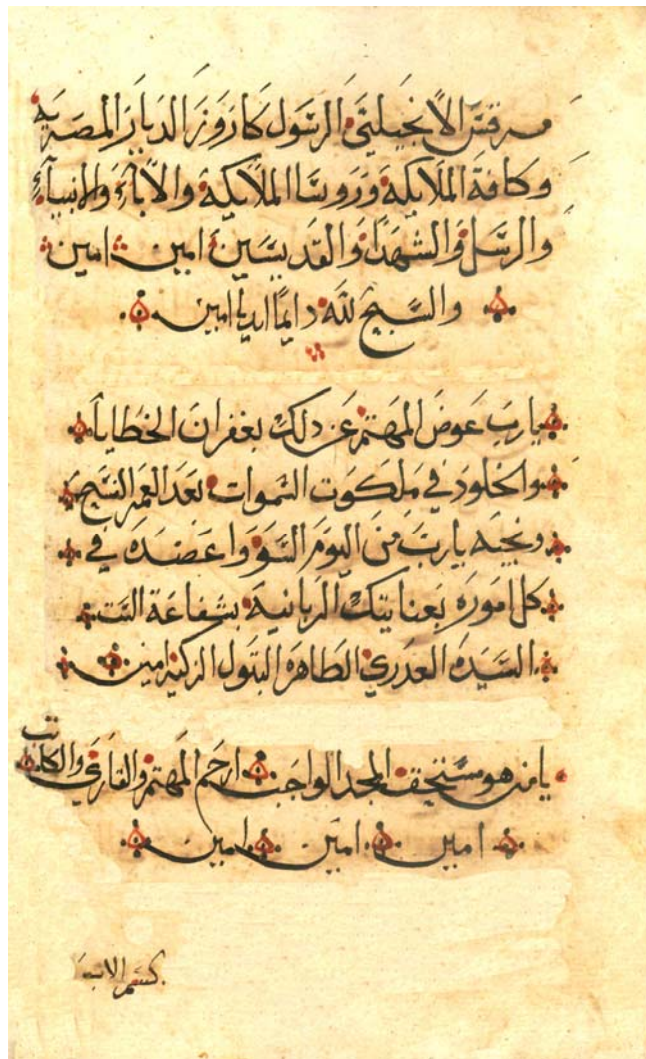 مرقس الانجيلي الرسول كاروز الديار المصريه
وكافة الملايكه وروسا الملايكه والابآء والانبيآء
والرسل والشهدا والقديسين امين امين
والسبح لله دايمًا ابديا امين
يارب عوض المهتم عن دلك بغفران الخطايا
والخلود في ملكوت السموات بعد العمر الفسيح
ونجيه يارب من اليوم السوَ واعضده في
كل اموره بعنايتك الربانيه بشفاعة الست
السيده العدري الطاهره البتول الزكيه امين
يا من هو مستحق المجد الواجب ارحم المهتم والقاري والكاتب
امين امين امين
كسم الاب